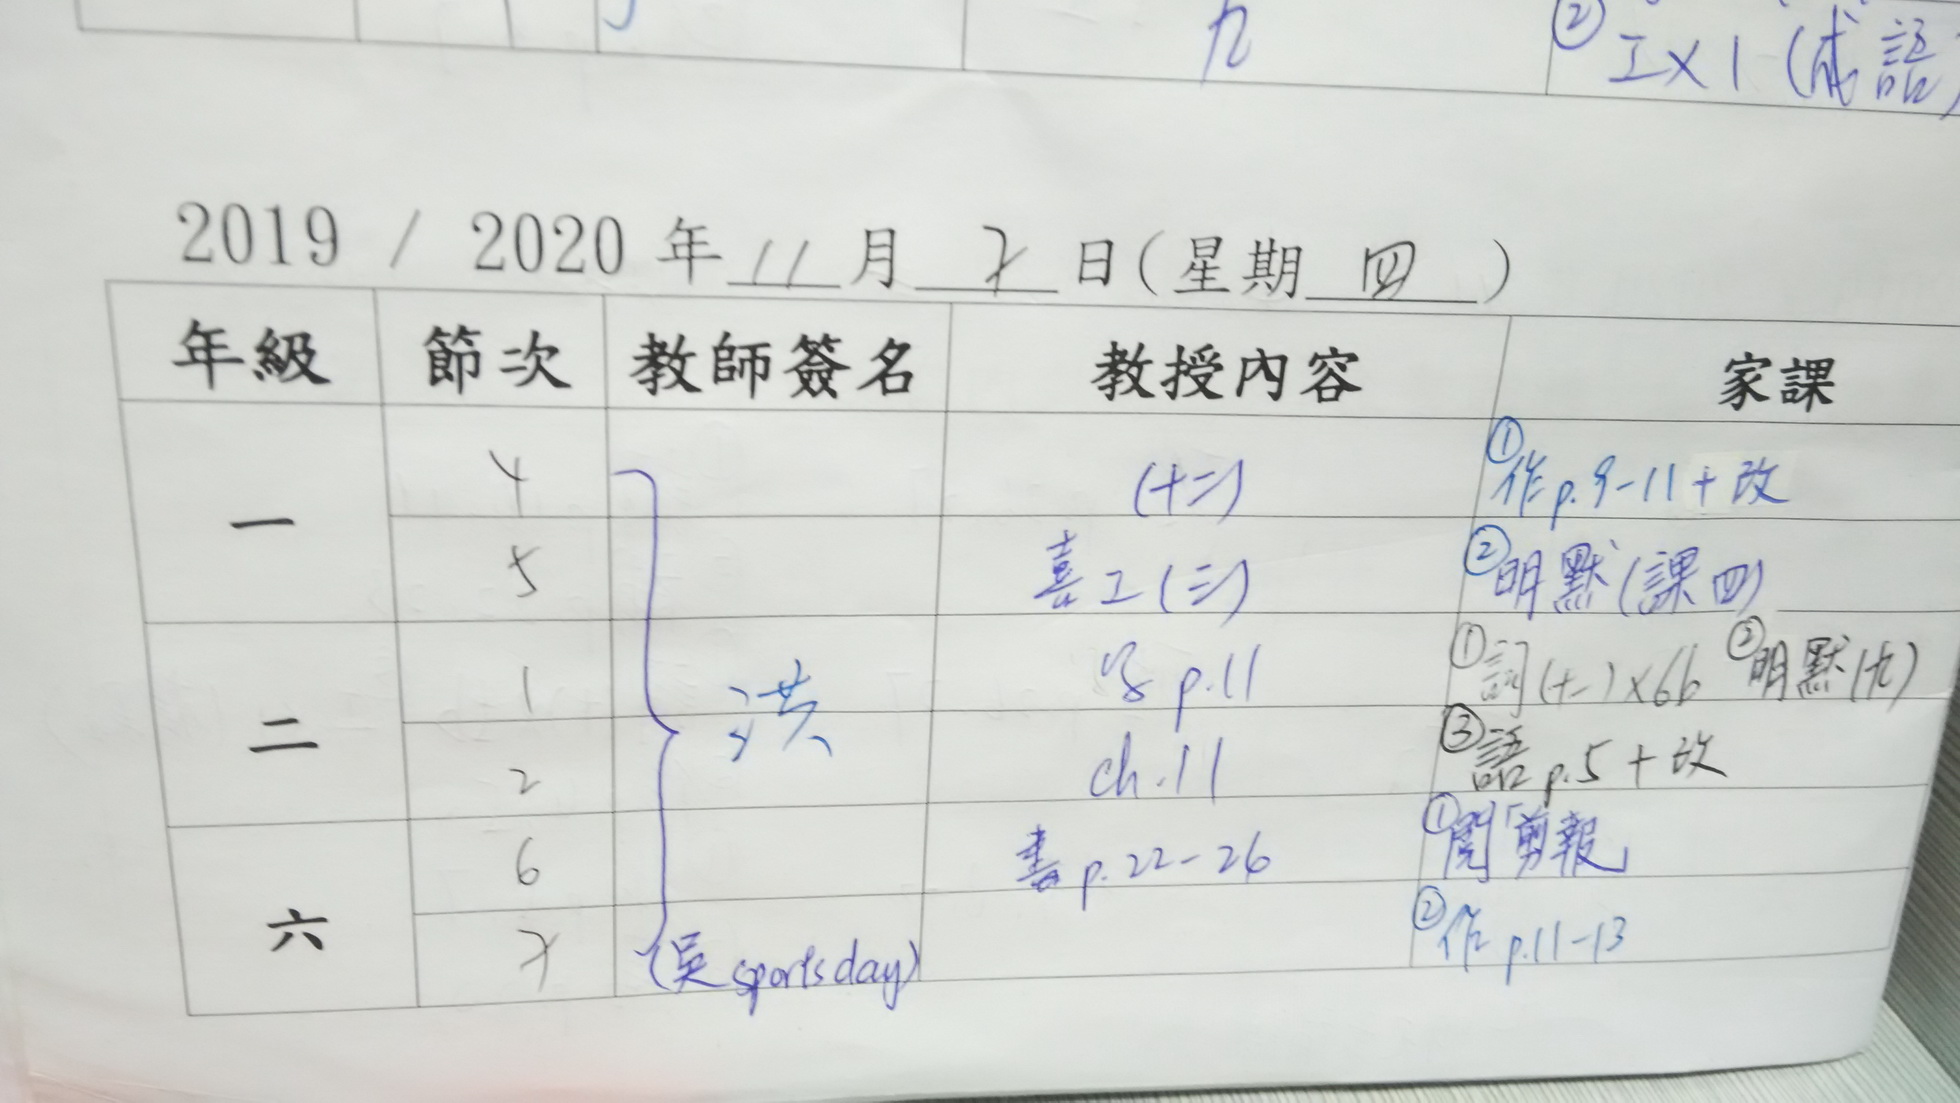 九
② 工×1 (成語)
2019 / 2020 年 11 月 7 日(星期 四 )
年級 節次 教師簽名 教授內容 家課
一 4 (十二) ①作p.9-11+改
5 喜工(三) ②明默(課四)
二 1 p.11 ①詞(十一)×6b ②明默(九)
洪
2 ch.11 ③語p.5+改
六 6 書p.22-26 ①閱「剪報」
7 (吳 sports day) ②作p.11-13